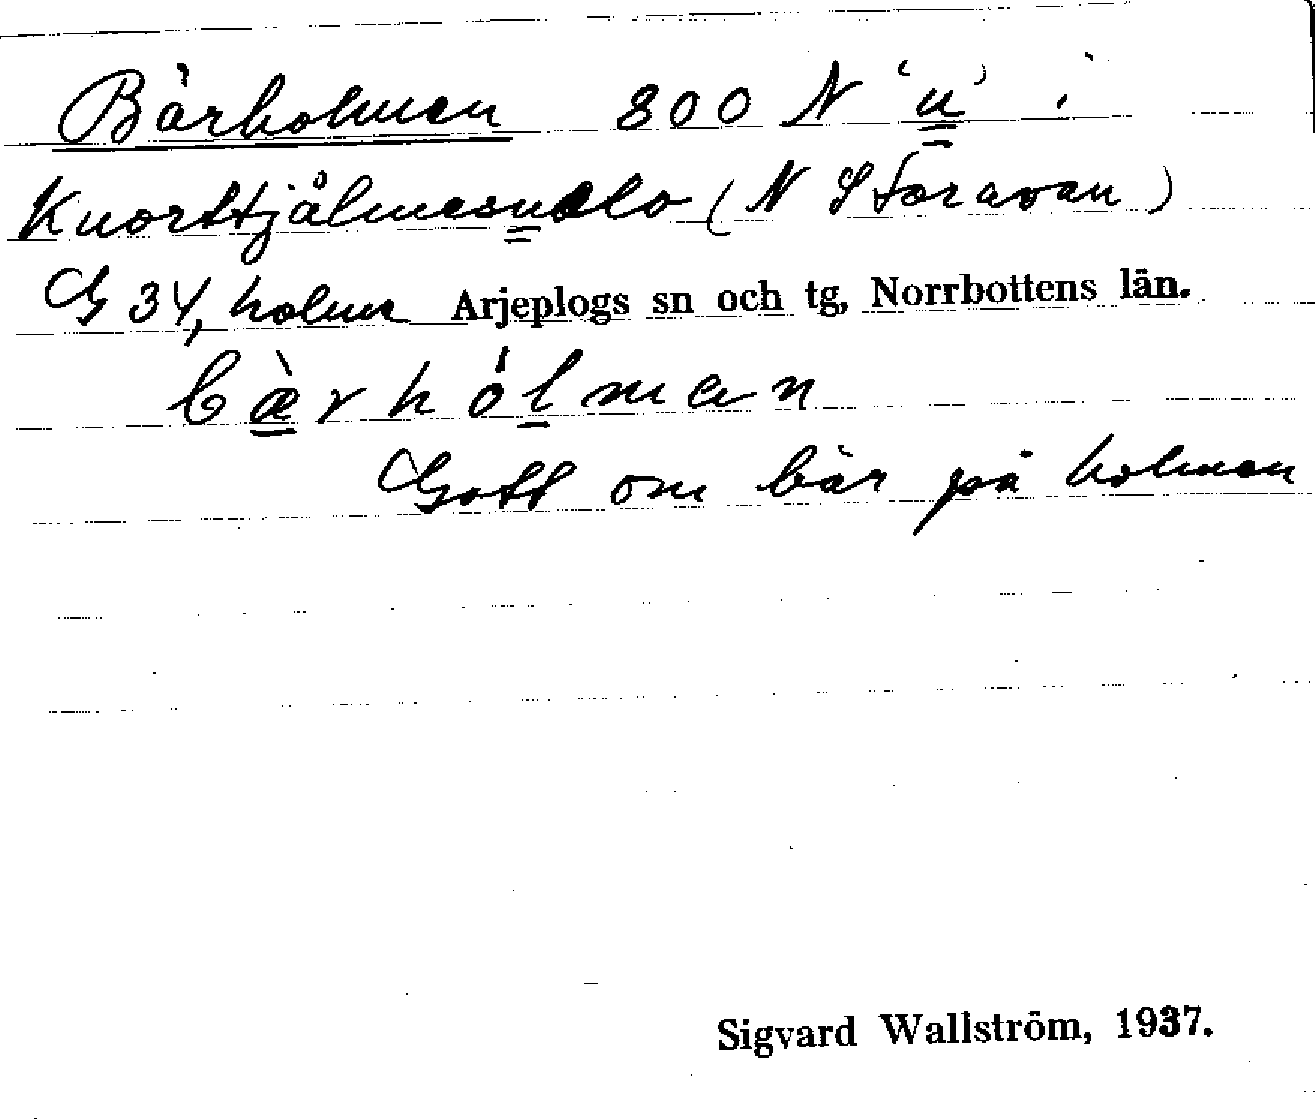 Bärholmen 800 N 'u' i
Knorttjålmesuolo (N Storavan)
G 34, holme Arjeplogs sn och tg, Norrbottens län.
bæ̀rhólman
Gott om bär på holmen
Sigvard Wallström, 1937.